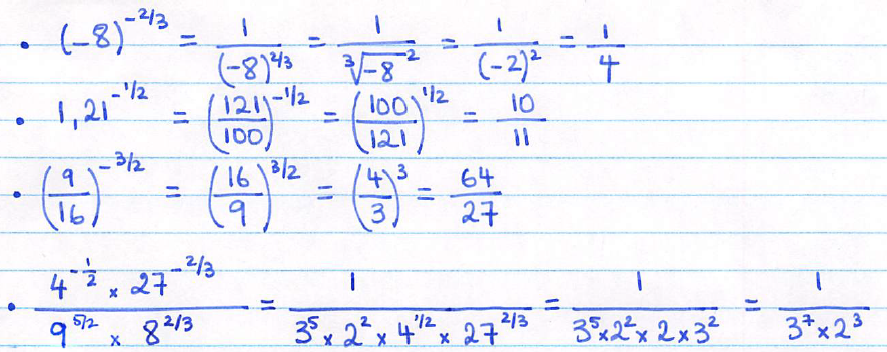 • (-8)^{-2/3} = \frac{1}{(-8)^{2/3}} = \frac{1}{\sqrt[3]{-8}^{2}} = \frac{1}{(-2)^2} = \frac{1}{4}
• 1,21^{-1/2} = \left(\frac{121}{100}\right)^{-1/2} = \left(\frac{100}{121}\right)^{1/2} = \frac{10}{11}
• \left(\frac{9}{16}\right)^{-3/2} = \left(\frac{16}{9}\right)^{3/2} = \left(\frac{4}{3}\right)^3 = \frac{64}{27}
• \frac{4^{-\frac{1}{2}} × 27^{-2/3}}{9^{5/2} × 8^{2/3}} = \frac{1}{3^5 × 2^2 × 4^{1/2} × 27^{2/3}} = \frac{1}{3^5 × 2^2 × 2 × 3^2} = \frac{1}{3^7 × 2^3}